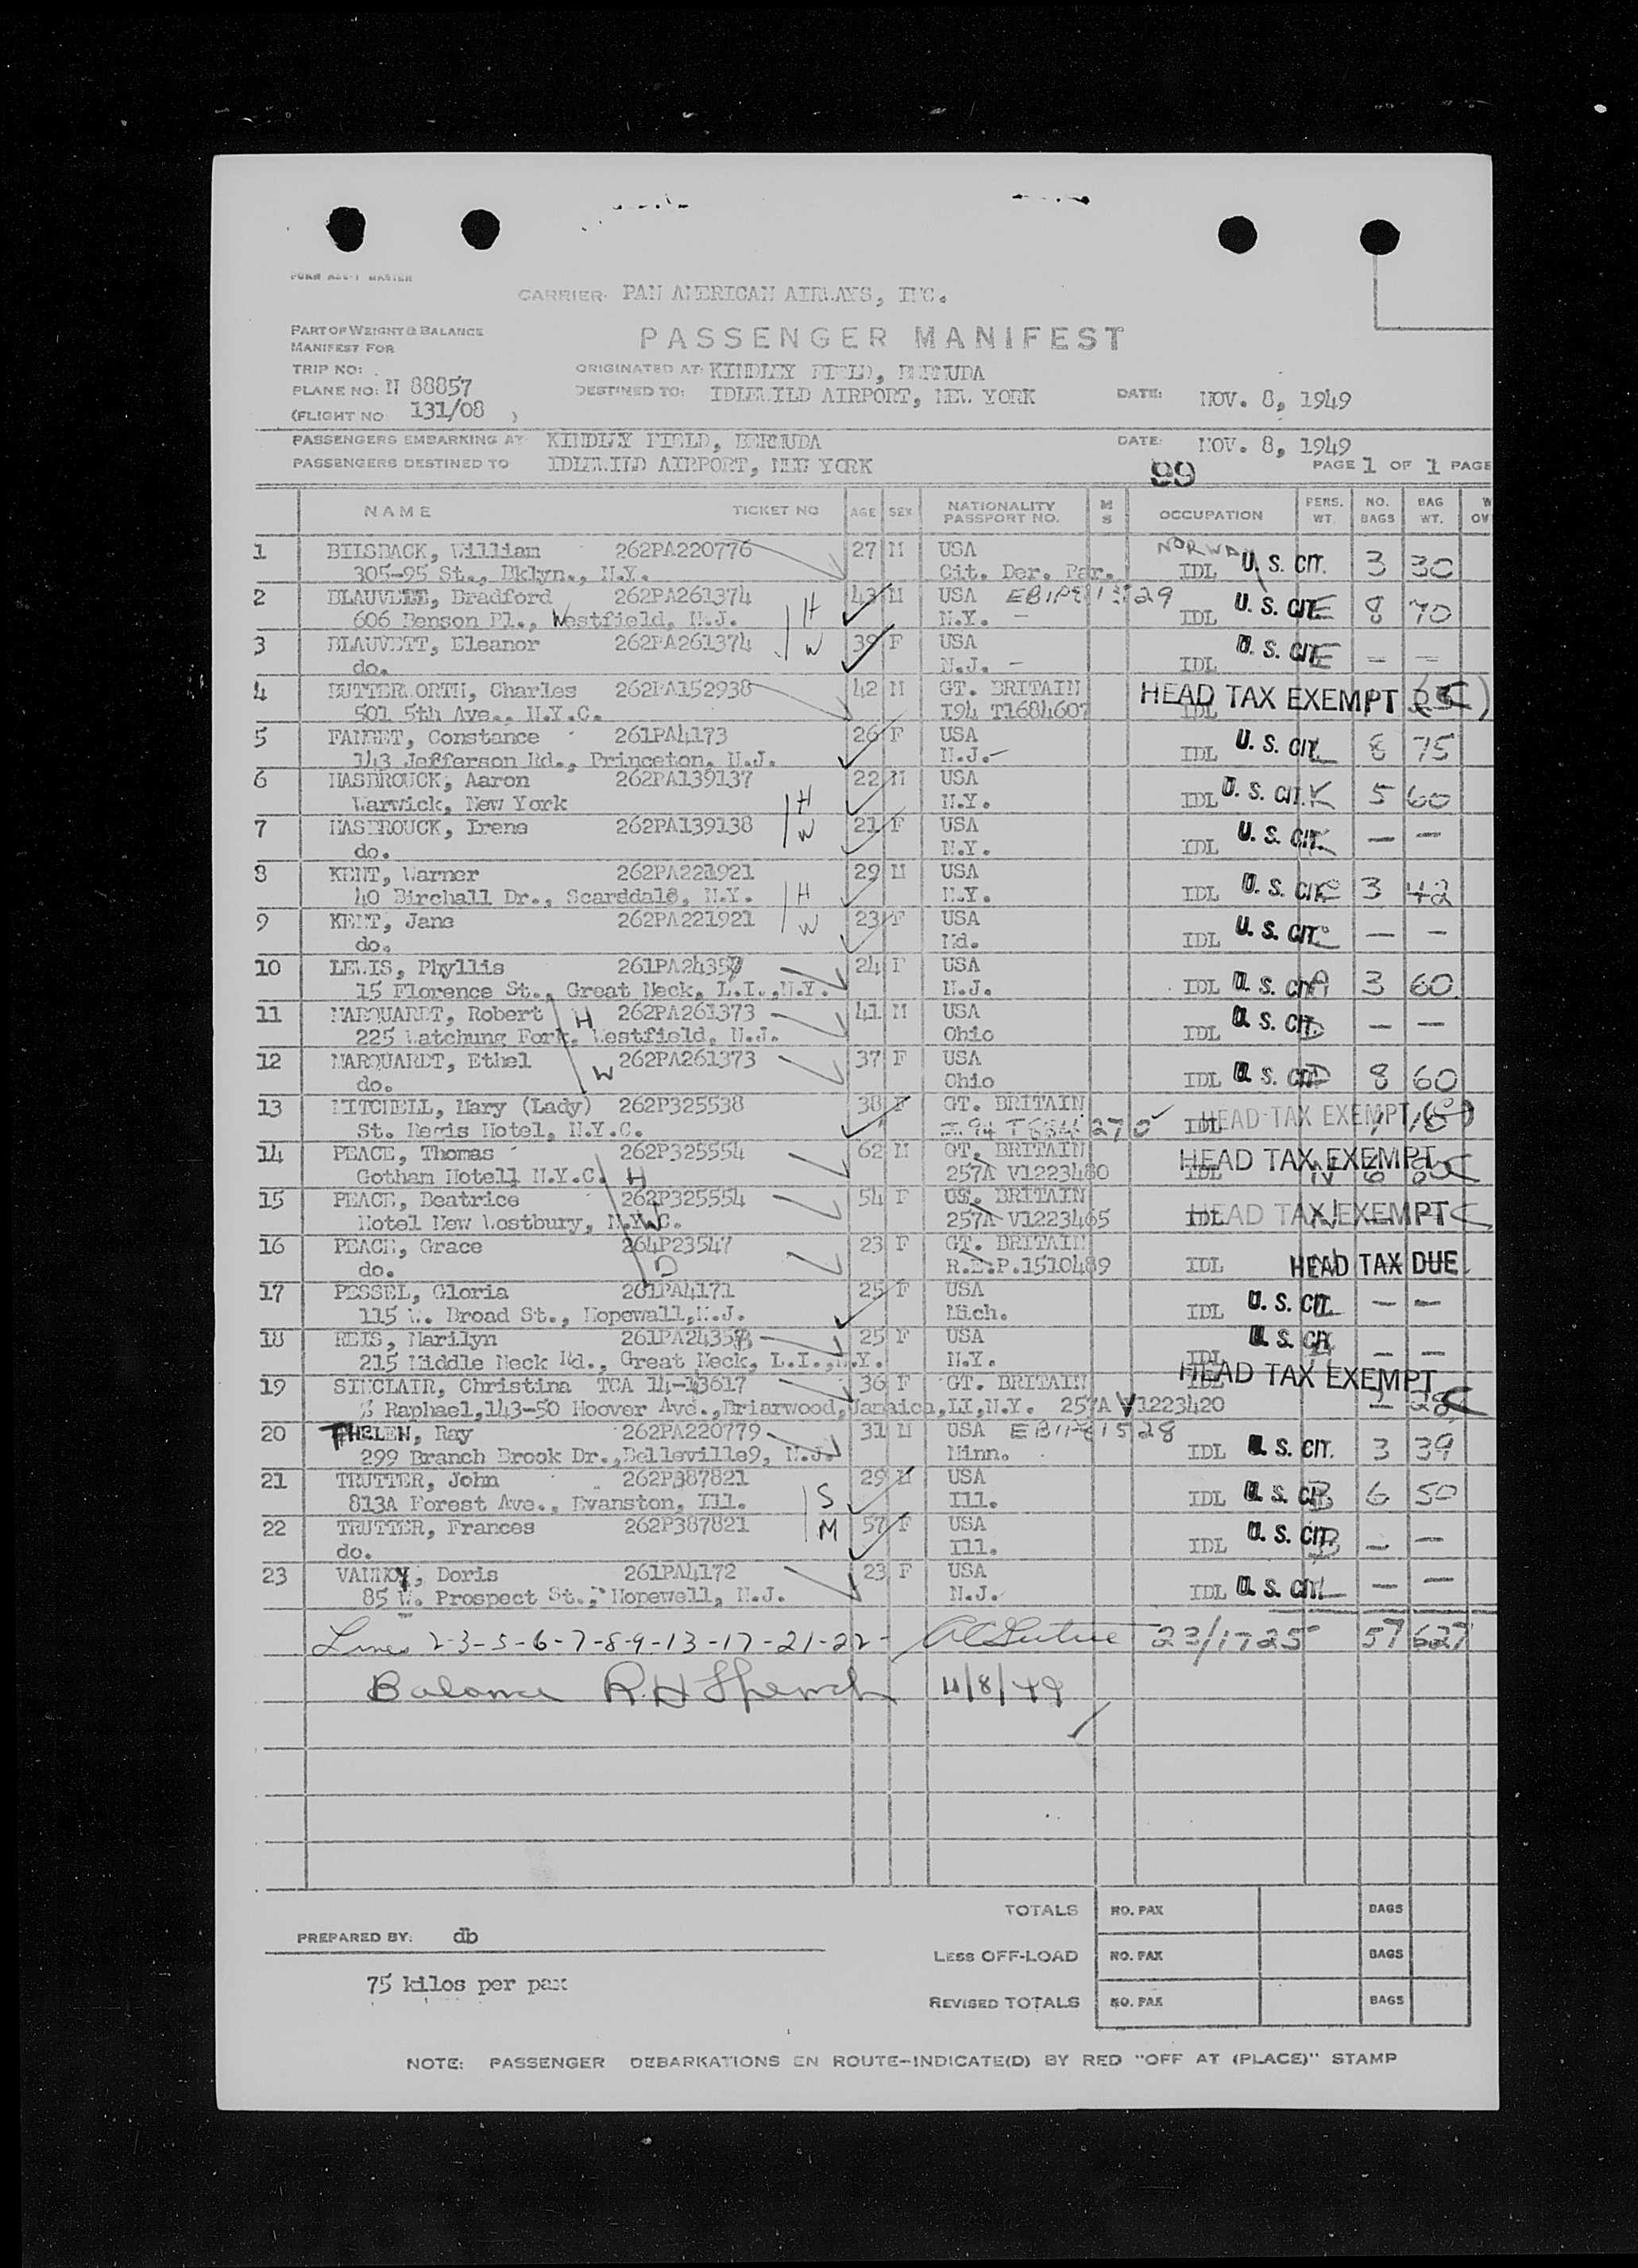 CARRIER: PAN AMERICAN AIRWAYS, INC.
PART OF WEIGHT & BALANCE
MANIFEST FOR
PASSENGER MANIFEST
TRIP NO:
ORIGINATED AT: KINDLEY FIELD, BERMUDA
PLANE NO: N 88857
DESTINED TO: IDLEWILD AIRPORT, NEW YORK
DATE: NOV. 8, 1949
(FLIGHT NO 131/08 )
PASSENGERS EMBARKING AT KINDLEY FIELD, BERMUDA DATE: NOV. 8, 1949
PASSENGERS DESTINED TO IDLEWILD AIRPORT, NEW YORK 99 PAGE 1 OF 1 PAGE
NAME TICKET NO AGE SEX NATIONALITY PASSPORT NO. M S OCCUPATION PERS. WT. NO. BAGS BAG WT. W OV
1 BILSBACK, William 262PA220776 27 M USA NORWAY U. S. CIT. 3 30
305-95 St., Bklyn., N.Y. Cit. Der. Par. IDL
2 BLAUVELT, Bradford 262PA261374 H 43 M USA U. S. CIT E 8 70
606 Benson Pl., Westfield, N.J. N.Y. - IDL
3 BLAUVETT, Eleanor 262PA261374 W 39 F USA U. S. CIT E — —
do. N.J. - IDL
4 BUTTERWORTH, Charles 262PA152938 42 M GT. BRITAIN HEAD TAX EXEMPT
501 5th Ave., N.Y.C. I94 T1684607 IDL
5 Constance 261PA4173 26 F USA U. S. CIT. L 8 75
143 Jefferson Rd., Princeton, N.J. N.J.- IDL
6 HASBROUCK, Aaron 262PA139137 H 22 M USA U. S. CIT. K 5 60
Warwick, New York N.Y. IDL
7 HASBROUCK, Irene 262PA139138 W 21 F USA U. S. CIT. K — —
do. N.Y. IDL
8 KENT, Warner 262PA221921 H 29 M USA U. S. CIT. C 3 42
40 Birchall Dr., Scarsdale, N.Y. N.Y. IDL
9 KENT, Jane 262PA221921 W 23 F USA U. S. CIT. C — —
do. Md. IDL
10 LEWIS, Phyllis 261PA24357 24 F USA U. S. CIT. A 3 60
15 Florence St., Great Neck, L.I.,N.Y. N.J. IDL
11 MARQUARDT, Robert H 262PA261373 41 M USA U. S. CIT. D — —
225 Watchung Fork, Westfield, N.J. Ohio IDL
12 MARQUARDT, Ethel W 262PA261373 37 F USA U. S. CIT. D 8 60
do. Ohio IDL
13 MITCHELL, Mary (Lady) 262P325538 38 F GT. BRITAIN HEAD TAX EXEMPT
St. Regis Hotel, N.Y.C. IDL
14 PEACE, Thomas 262P325554 62 M GT. BRITAIN HEAD TAX EXEMPT
Gotham Hotell N.Y.C. H 257A V1223480 IDL N
15 PEACE, Beatrice 262P325554 54 F GT. BRITAIN HEAD TAX EXEMPT
Hotel New Westbury, N.Y.C. W 257A V1223465 IDL N
16 PEACE, Grace 264P23547 23 F GT. BRITAIN HEAD TAX DUE
do. D R.E.P.1510489 IDL
17 PESSEL, Gloria 261PA4171 25 F USA U. S. CIT. L — —
115 W. Broad St., Hopewell,N.J. Mich. IDL
18 REIS, Marilyn 261PA24358 25 F USA U. S. CIT. A — —
215 Middle Neck Rd., Great Neck, L.I.,N.Y. N.Y. IDL
19 SINCLAIR, Christina TCA 14-13617 36 F GT. BRITAIN HEAD TAX EXEMPT
% Raphael,143-50 Hoover Ave.,Briarwood,Jamaica,LI,N.Y. 257A V1223420 2 28
20 THELEN, Ray 262PA220779 31 M USA U. S. CIT. 3 39
299 Branch Brook Dr.,Belleville9, N.J. Minn. IDL
21 TRUTTER, John 262P387821 S 29 M USA U. S. CIT. B 6 50
813A Forest Ave., Evanston, Ill. Ill. IDL
22 TRUTTER, Frances 262P387821 M 57 F USA U. S. CIT. B — —
do. Ill. IDL
23 Doris 261PA4172 23 F USA U. S. CIT. L — —
85 W. Prospect St., Hopewell, N.J. N.J. IDL
Lines 2-3-5-6-7-8-9-13-17-21-22- 23/1725 57 627
Balance R.H. 11/8/49
TOTALS NO. PAX BAGS
PREPARED BY: db
LESS OFF-LOAD NO. PAX BAGS
75 kilos per pax
REVISED TOTALS NO. PAX BAGS
NOTE: PASSENGER DEBARKATIONS EN ROUTE-INDICATE(D) BY RED "OFF AT (PLACE)" STAMP